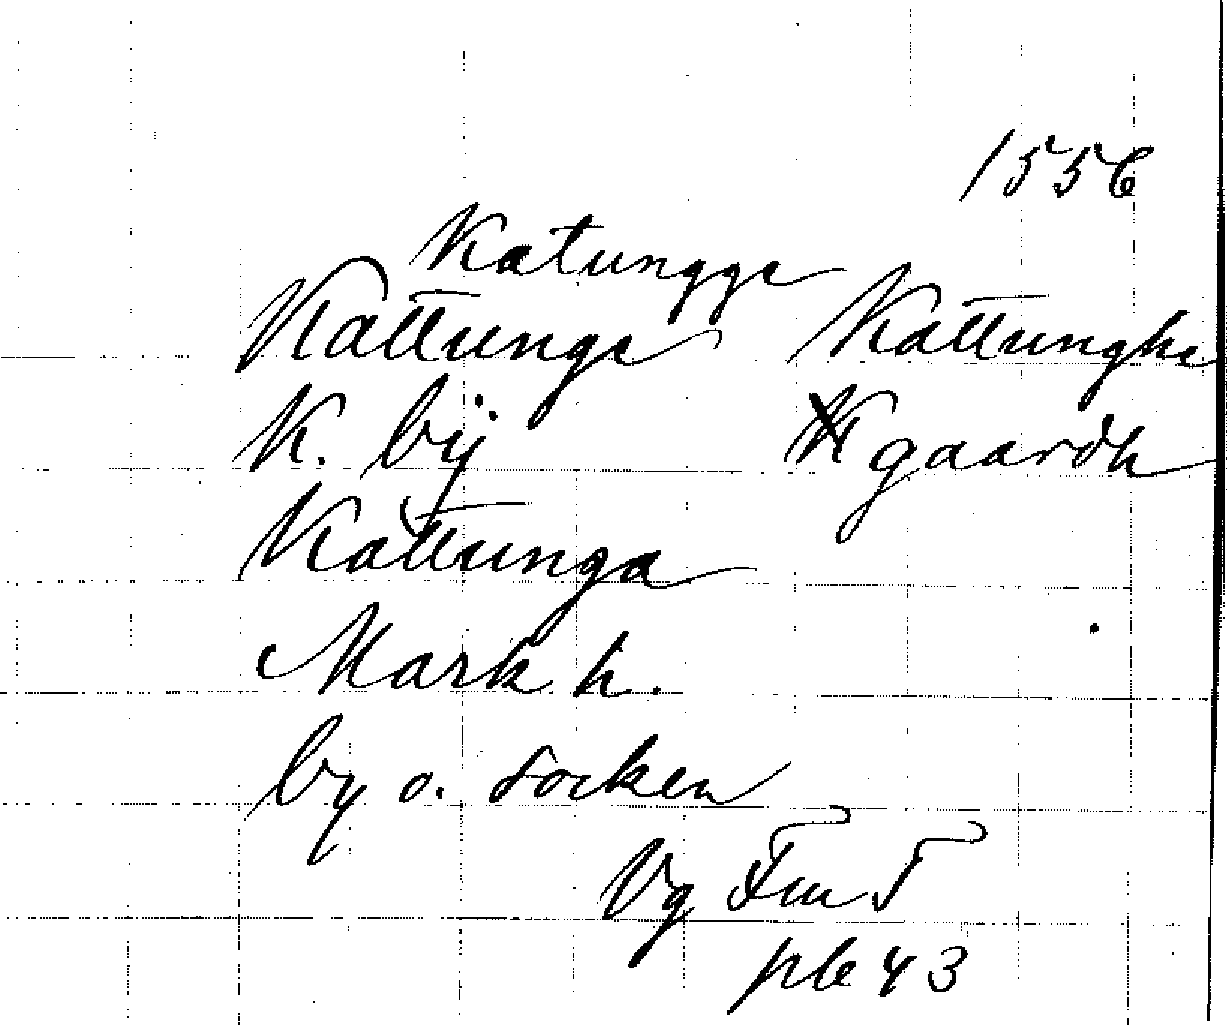 1556
Katungge
Kattunge Kattunghe
K. bÿ gaardh
Kattunga
Mark h.
by o. socken
Vg
p 643